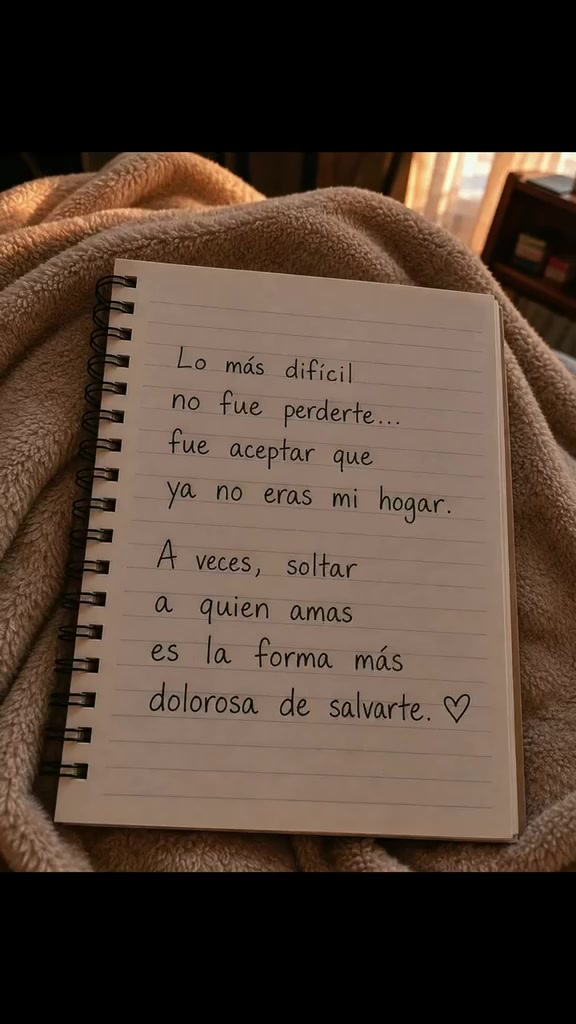 Lo más difícil
no fue perderte...
fue aceptar que
ya no eras mi hogar.
A veces, soltar
a quien amas
es la forma más
dolorosa de salvarte. ♡